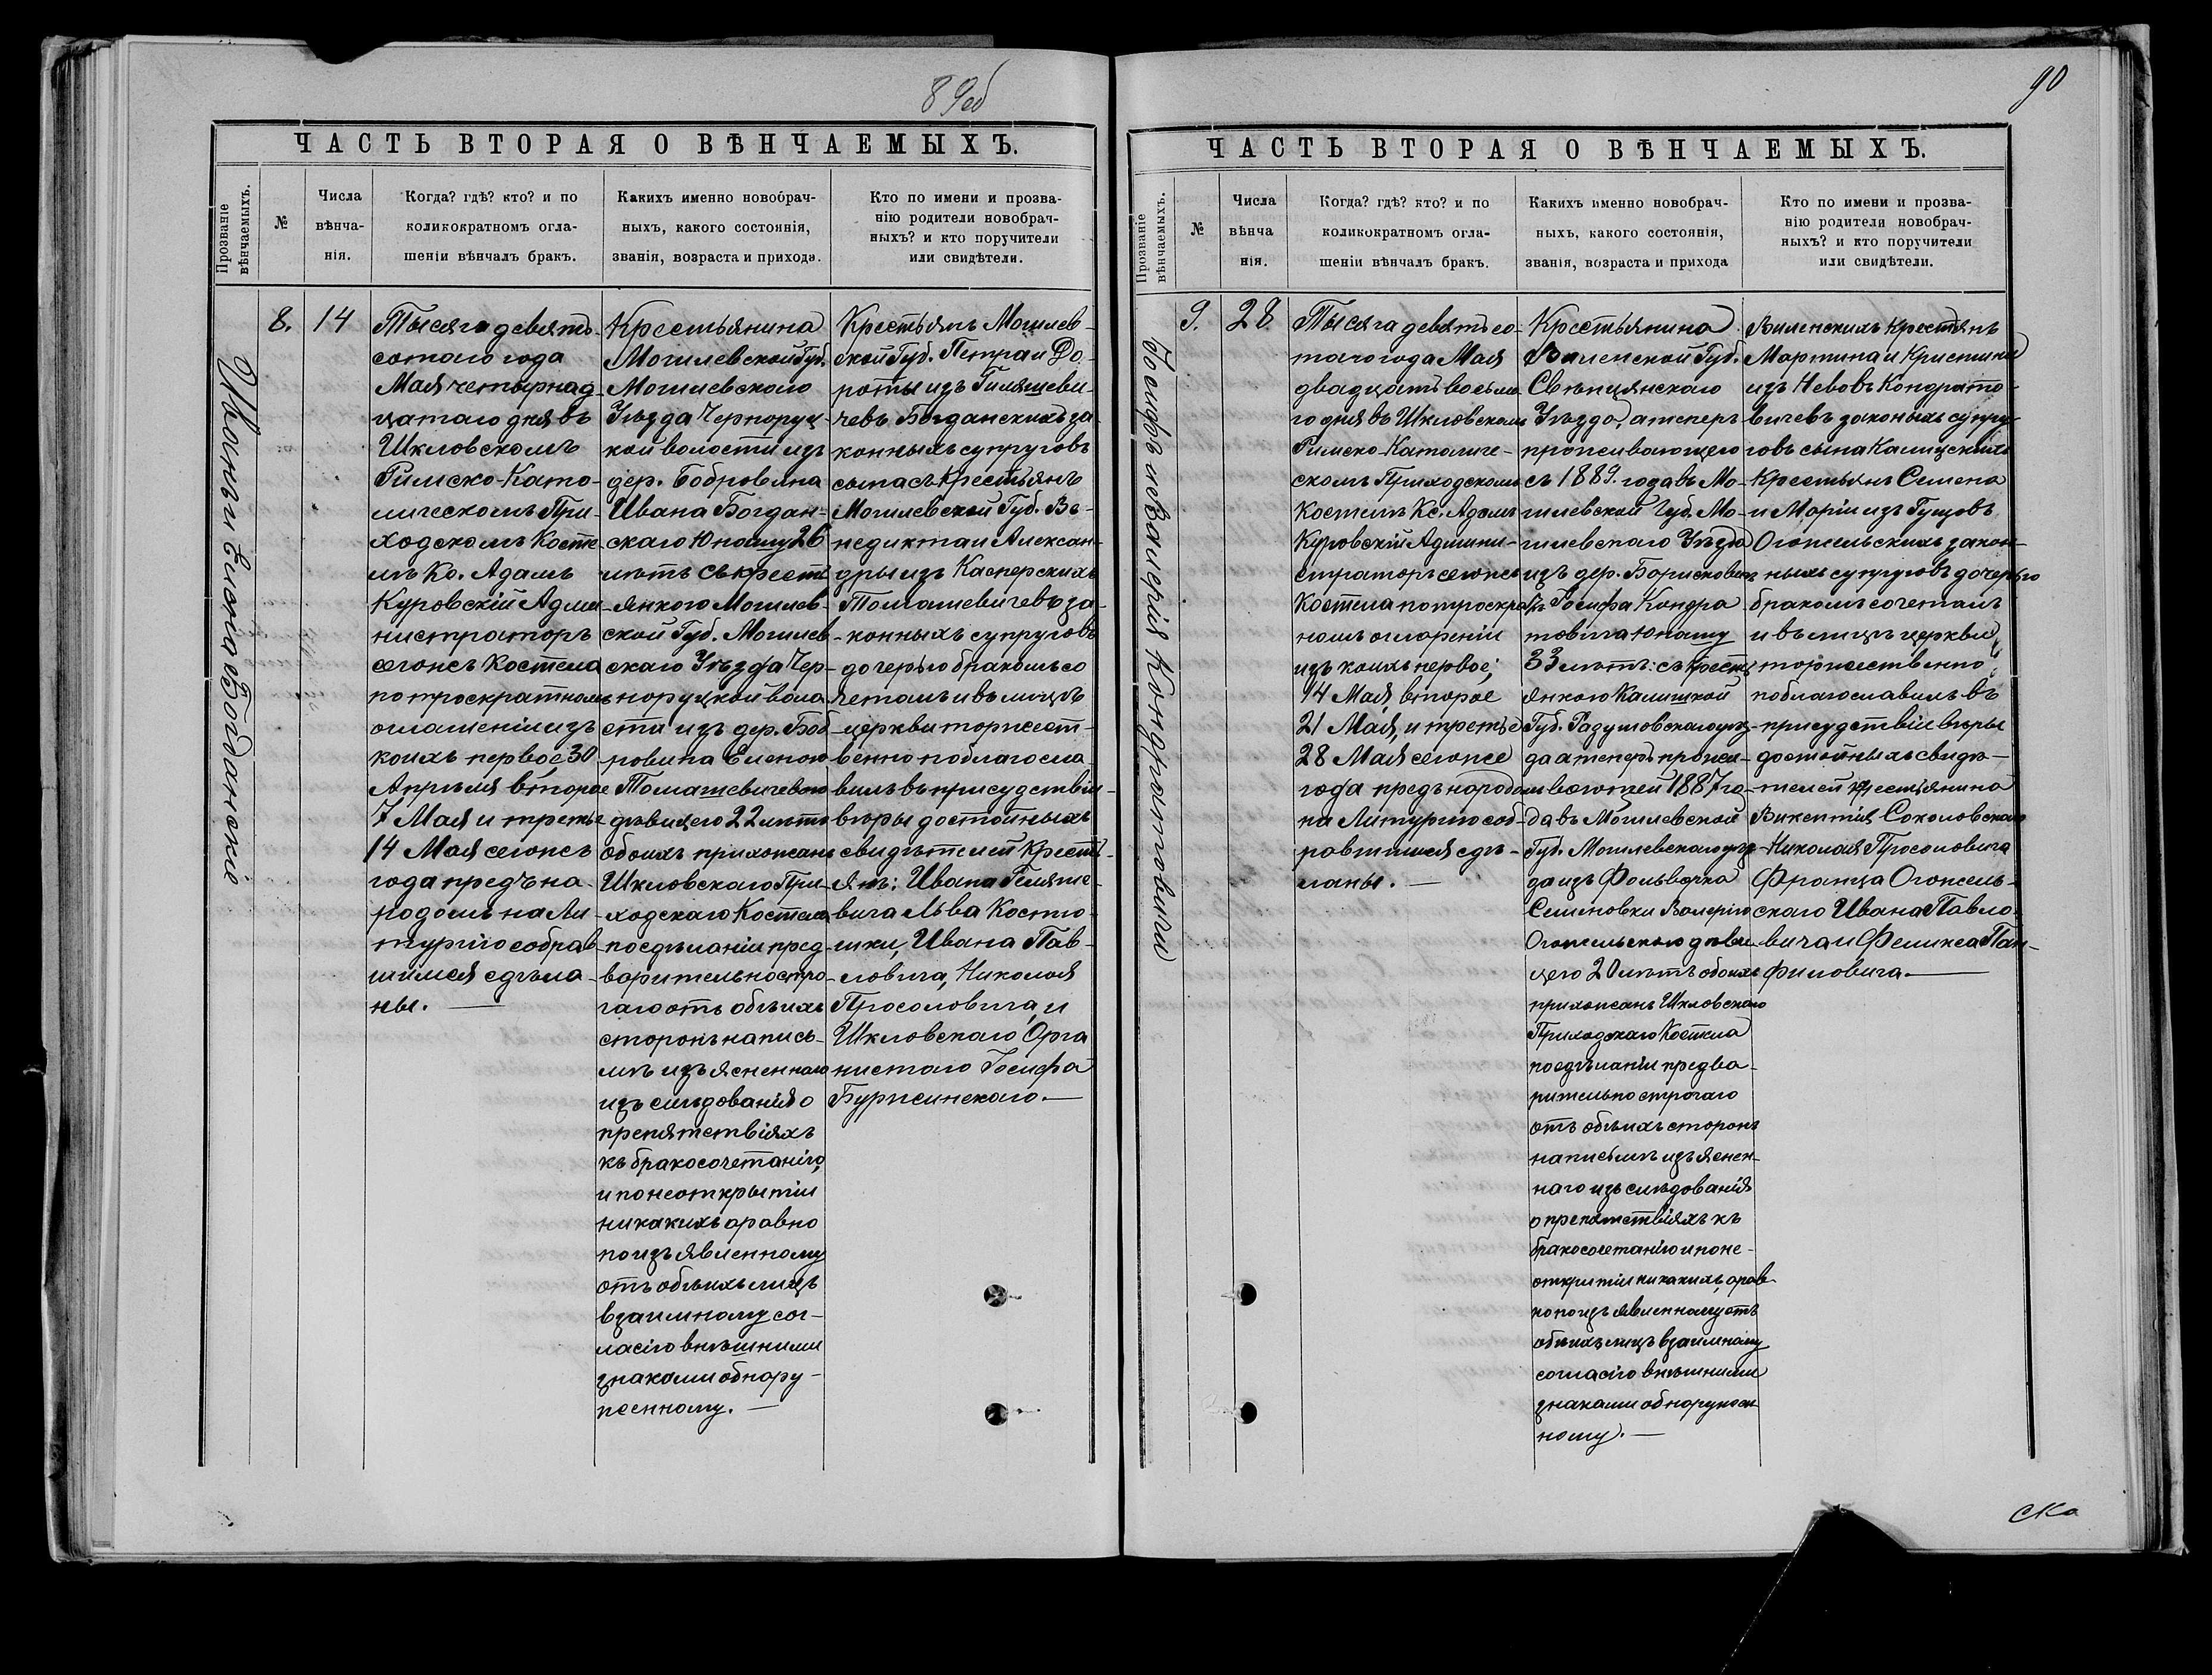 89об
ЧАСТЬ ВТОРАЯ О ВѢНЧАЕМЫХЪ.
Прозваніе
вѣнчаемыхъ.
№
Числа
вѣнча-
нія.
Когда? гдѣ? кто? и по
коликократномъ огла-
шеніи вѣнчалъ бракъ.
Какихъ именно новобрач-
ныхъ, какого состоянія,
званія, возраста и прихода.
Кто по имени и прозва-
нію родители новобрач-
ныхъ? и кто поручители
или свидѣтели.
Иванъ и Елена Богданскіе
8.
14
Тысяча девять-
сотаго года
Мая четырнад-
цатаго дня въ
Шкловскомъ
Римско-Като-
лическомъ При-
ходскомъ Косте-
лѣ Кс. Адамъ
Куровскій Адми-
нистраторъ
сегожъ Костела
по троекратномъ
оглашеніи изъ
коихъ первое 30
Апрѣля второе
7 Мая и третье
14 Мая сегожъ
года предъ на-
родомъ на Ли-
тургію собрав-
шимся сдѣла-
ны.
Крестьянина
Могилевской Губ.
Могилевского
Уѣзда Черноруц-
кой волости изъ
дер. Бобровина
Ивана Богдан-
скаго Юношу 26
лѣтъ съ крестъ-
янкою Могилев-
ской Губ. Могилев-
скаго Уѣзда Чер-
норуцкой воло-
сти изъ дер. Боб-
ровина Еленою
Томашевичевою
дѣвицею 22 лѣтъ
обоихъ прихожанъ
Шкловскаго При-
ходскаго Костела
посдѣланіи пред-
варительно стро-
гаго отъ обѣихъ
сторонъ на пись-
мѣ изъясненнаго
изъслѣдованія о
препятствіяхъ
къ бракосочетанію,
и по неоткрытіи
никакихъ а равно
по изъявленному
отъ обѣихъ лицъ
взаимному сог-
ласію внѣшними
знаками обнару-
женному.
Крестьянъ Могилев-
ской Губ. Петра и До-
роты изъ Гиляшеви-
чевъ Богданскихъ за-
конныхъ супруговъ
сына съ Крестьянъ
Могилевской Губ. Ве-
недикта и Алексан-
дры изъ Касперскихъ
Томашевичевъ за-
конныхъ супруговъ
дочерью бракомъ со
четалъ и въ лицѣ
церкви торжест-
венно поблагосла-
вилъ въ присудствіи
вѣры достойныхъ
свидѣтелей Кресть-
янъ: Ивана Геляше-
вича Льва Костю-
шки, Ивана Пав-
ловича, Николая
Просоловича, и
Шкловскаго Орга
нистаго Іосифа
Буржинскаго.
90
ЧАСТЬ ВТОРАЯ О ВѢНЧАЕМЫХЪ.
Прозваніе
вѣнчаемыхъ.
№
Числа
вѣнча
нія.
Когда? гдѣ? кто? и по
коликократномъ огла-
шеніи вѣнчалъ бракъ.
Какихъ именно новобрач-
ныхъ, какого состоянія,
званія, возраста и прихода
Кто по имени и прозва-
нію родители новобрач-
ныхъ? и кто поручители
или свидѣтели.
Іосифъ и Валерія Кондратовичи
9.
28
Тысяча девятьсо-
таго года Мая
двадцать восьма-
го дня въ Шкловскомъ
Римско-Католиче-
скомъ Приходскомъ
Костелѣ Кс. Адамъ
Куровскій Админи-
страторъ сегожъ
Костела по троекрат-
номъ оглашеніи
изъ коихъ первое;
14 Мая, второе
21 Мая, и третье
28 Мая сегоже
года предъ народомъ
на Литургію соб-
равшимся сдѣ-
ланы.
Крестьянина
Виленской Губ.
Свѣнцянскаго
Уѣзда, а теперь
проживающего
съ 1889. года въ Мо-
гилевской Губ. Мо-
гилевскаго Уѣзда
изъ дер. Борисковичъ
Іосифа Кондра
товича Юношу
33 лѣтъ: съ крестъ
янкою Калишкой
Губ. Радушовскаго уѣз-
да а теперь прожи-
вающей 1887 го-
да въ Могилевской
Губ. Могилевскаго уѣз-
да изъ Фольварка
Семеновки Валерію
Огожельскою дѣви-
цею 20 лѣтъ обоихъ
прихожанъ Шкловскаго
Приходскаго Костела
посдѣланіи предва-
рительно строгаго
отъ обѣихъ сторонъ
на письмѣ изъяснен-
наго изъслѣдованія
о препятствіяхъ къ
бракосочетанію и по не-
открытіи никакихъ, а рав-
но по изъявленному отъ
обѣихъ лицъ взаимному
согласію внѣшними
знаками обнаружен-
ному.
Виленскихъ крестьянъ
Мартина и Кристины
изъ Невовъ Кондрато-
вичевъ законыхъ супру-
говъ сына Калишскихъ
Крестьянъ Семена
и Маріи изъ Гущовъ
Огожельскихъ закон-
ныхъ супруговъ дочерью
бракомъ сочеталъ
и въ лицѣ церкви
торжественно
поблагославилъ въ
присудствіи вѣры
достойныхъ свидѣ-
телей крестьянина
Викентія Соколовскаго
Николая Просоловича
Франца Огожель-
скаго Ивана Павло-
вича и Феликса Пан-
филовича.
ска